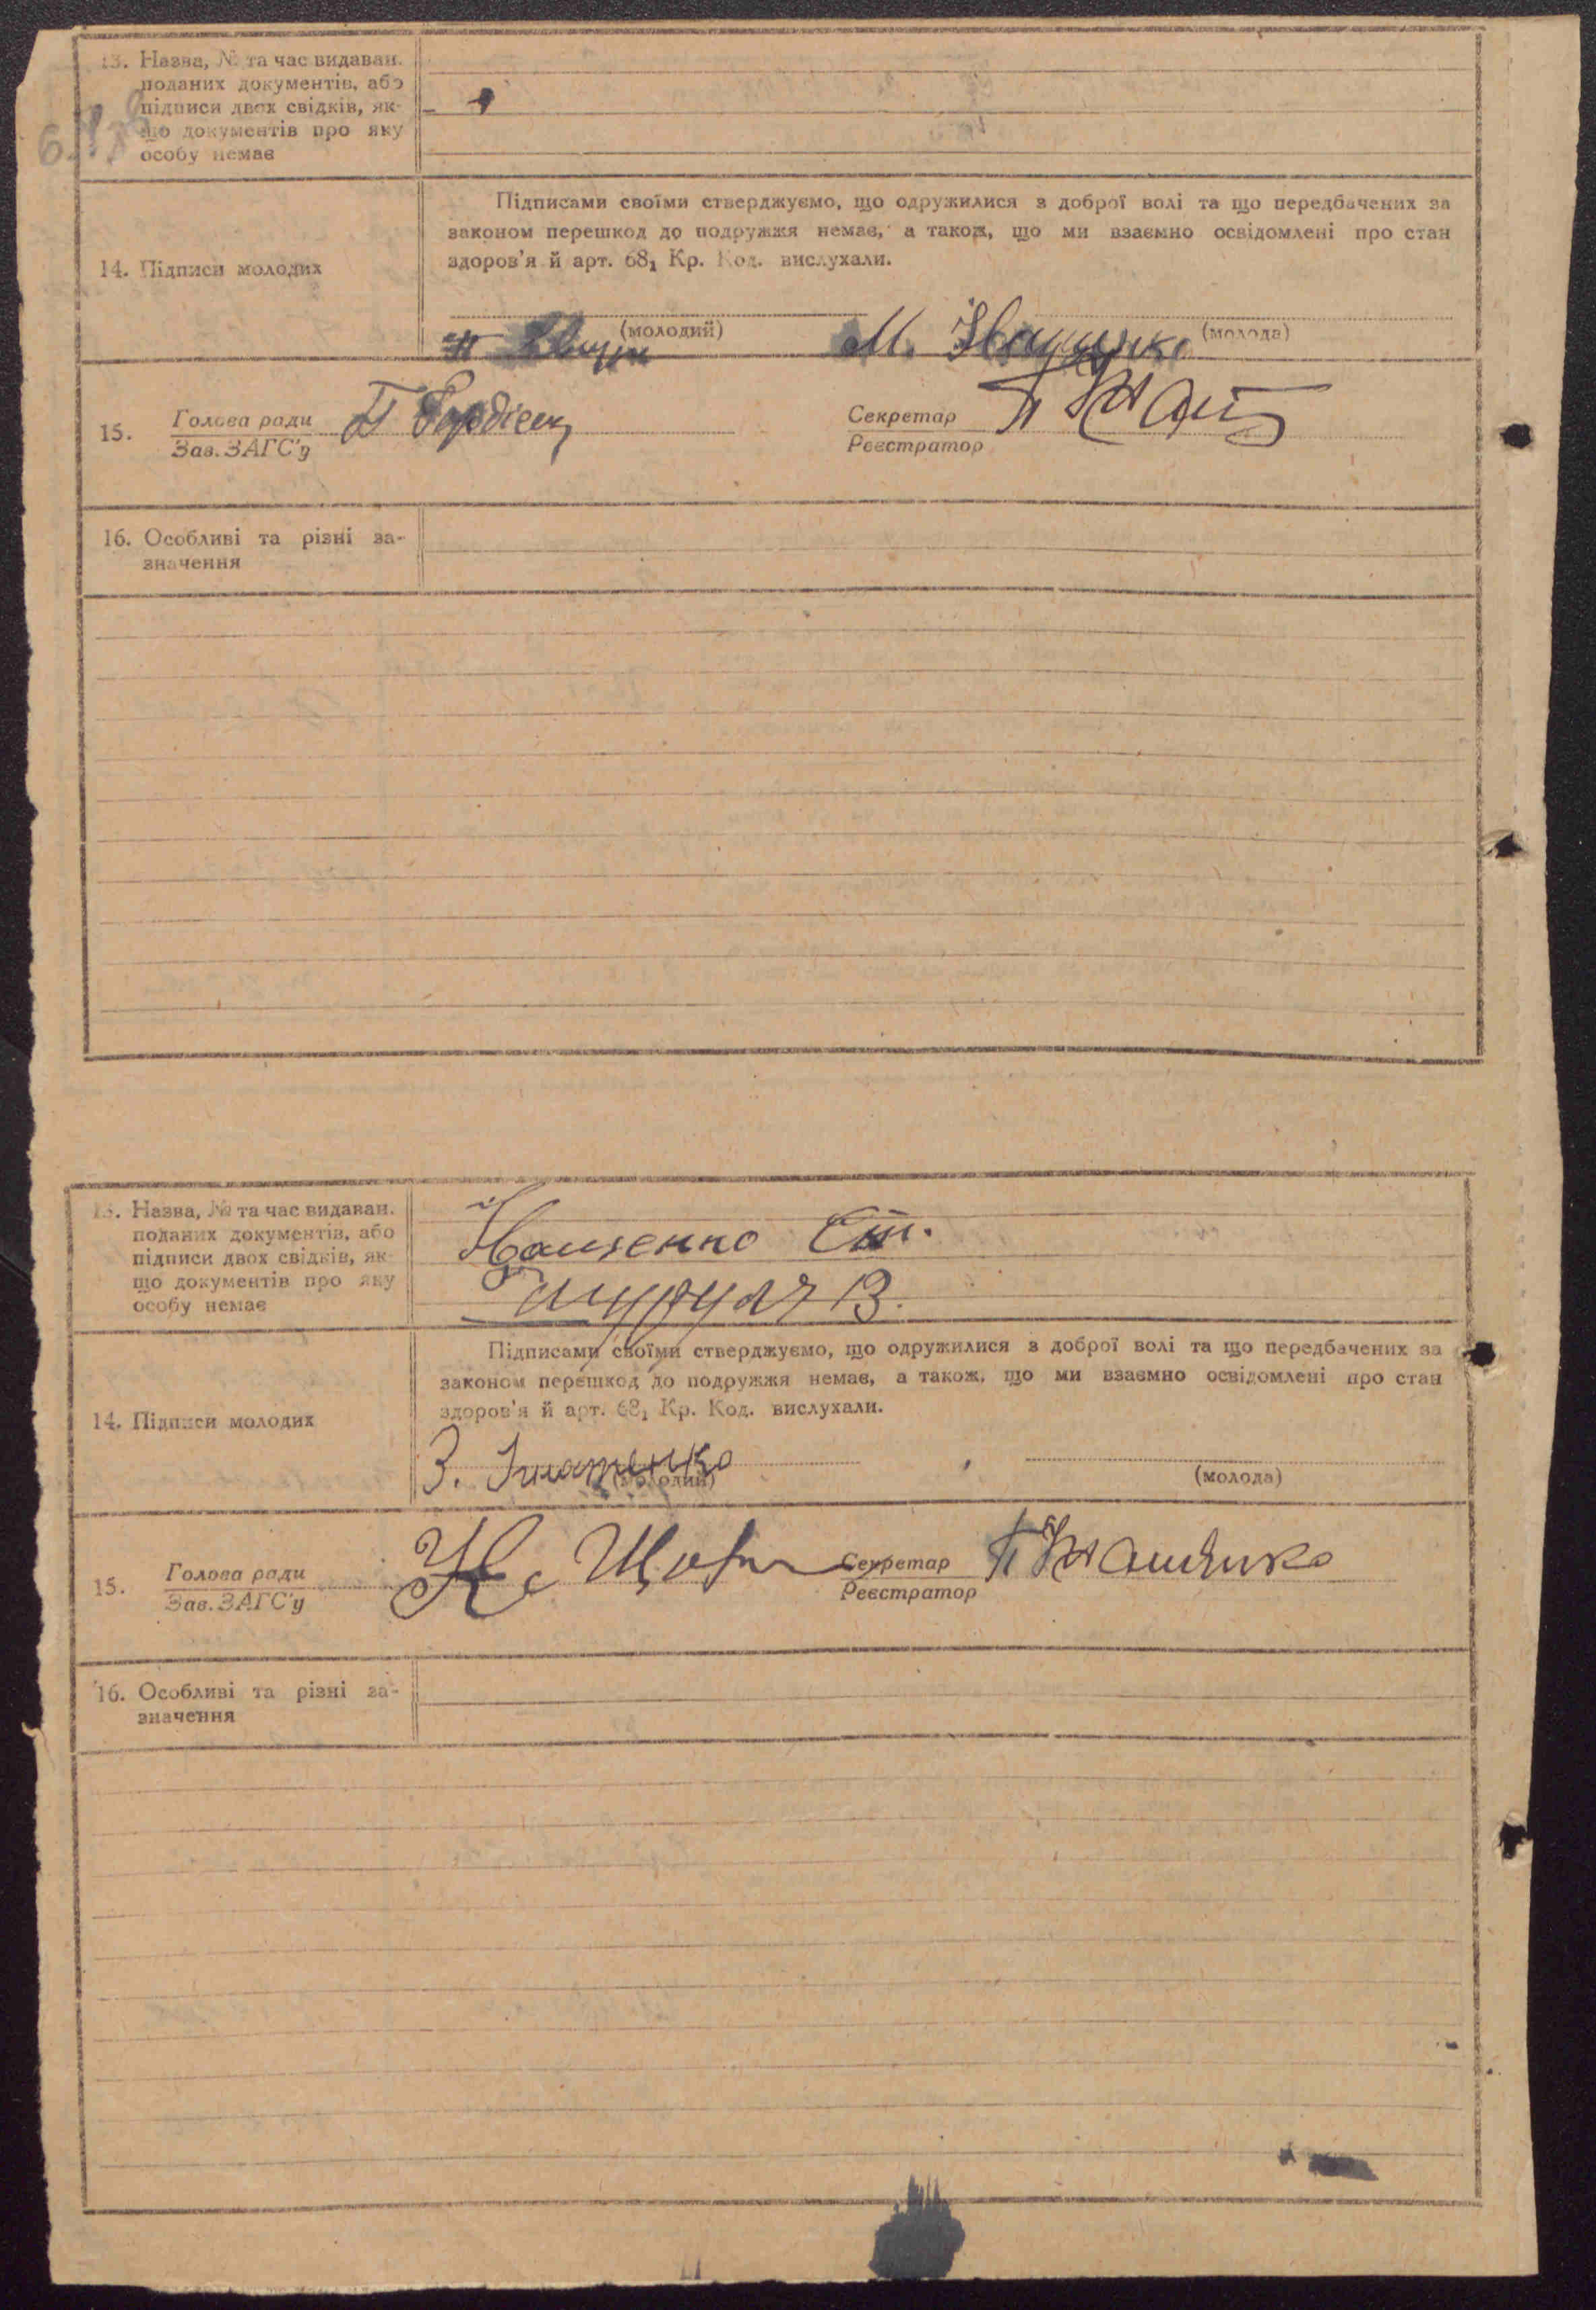 13. Назва, № та час видаван.
поданих документів, або
підписи двох свідків, як-
що документів про яку
особу немає
Підписами своїми стверджуємо, що одружилися з доброї волі та що передбачених за
законом перешкод до подружжя немає, а також, що ми взаємно освідомлені про стан
здоров'я й арт. 68₁ Кр. Код. вислухали.
14. Підписи молодих
(молодий) (молода)
М.
15. Голова ради П Гордієнк Секретар П
Зав. ЗАГС'у Реєстратор
16. Особливі та різні за-
значення
13. Назва, № та час видаван.
поданих документів, або
підписи двох свідків, як-
що документів про яку
особу немає
В.
Підписами своїми стверджуємо, що одружилися з доброї волі та що передбачених за
законом перешкод до подружжя немає, а також, що ми взаємно освідомлені про стан
здоров'я й арт. 68₁ Кр. Код. вислухали.
14. Підписи молодих
З. Ігнатенко
(молодий) (молода)
15. Голова ради Секретар П
Зав. ЗАГС'у Реєстратор
16. Особливі та різні за-
значення